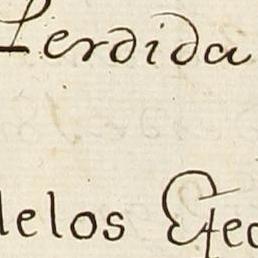 Perdida
delos Efec